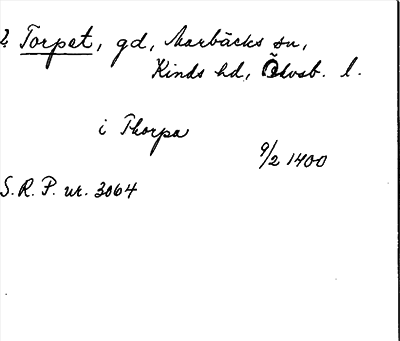 ? Torpet, gd, Marbäcks sn,
Kinds hd, Älvsb. l.
i Thorpa
9/2 1400
S.R.P. nr. 3064